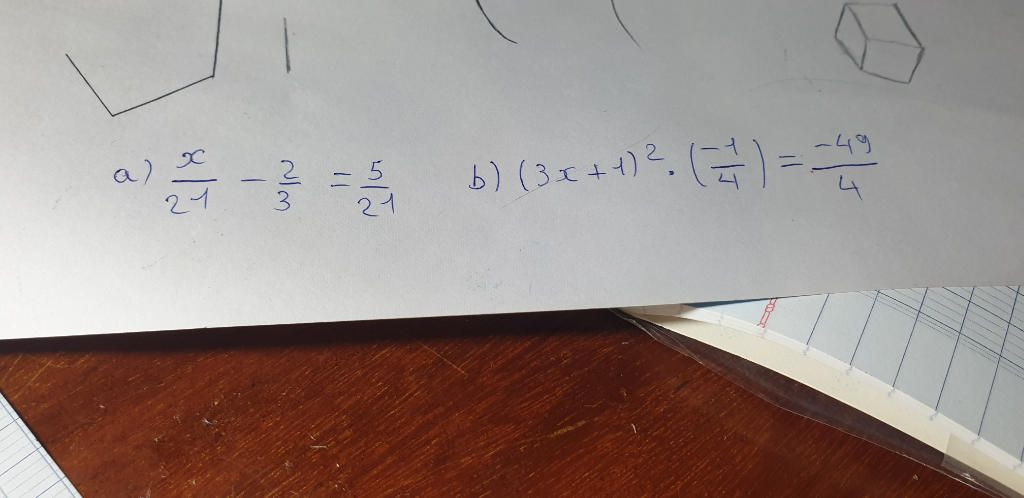 a) x/21 - 2/3 = 5/21 b) (3x+1)² · (-1/4) = -49/4